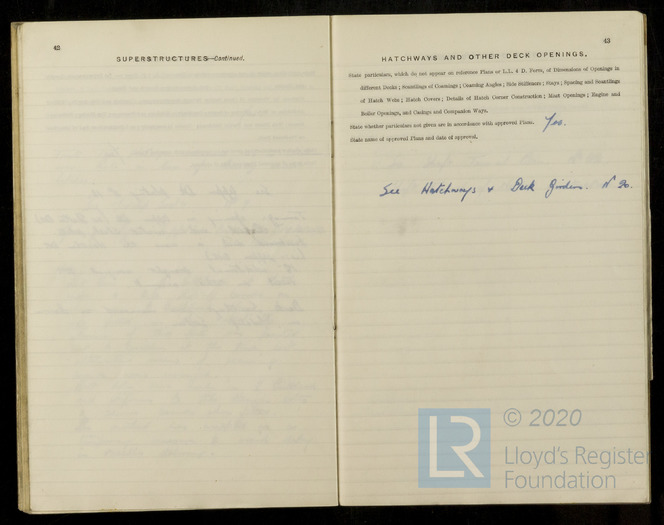 42
SUPERSTRUCTURES—Continued.
43
HATCHWAYS AND OTHER DECK OPENINGS.
State particulars, which do not appear on reference Plans or L.L. 4 D. Form, of Dimensions of Openings in
different Decks; Scantlings of Coamings; Coaming Angles; Side Stiffeners; Stays; Spacing and Scantlings
of Hatch Webs; Hatch Covers; Details of Hatch Corner Construction; Mast Openings; Engine and
Boiler Openings, and Casings and Companion Ways.
State whether particulars not given are in accordance with approved Plans. Yes.
State name of approved Plans and date of approval.
See Hatchways & Deck Girders. No 20.
LR
© 2020
Lloyd's Register
Foundation